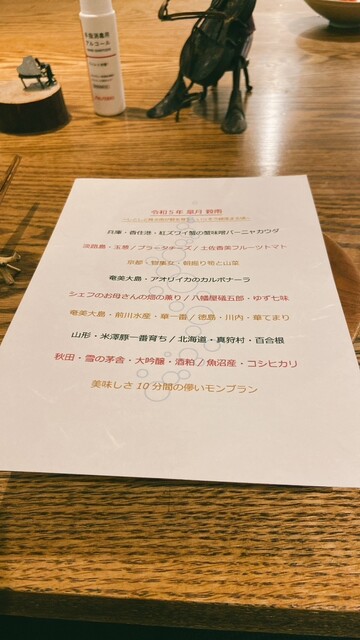 手指消毒用
アルコール
令和5年 皐月 穀雨
兵庫・香住港・紅ズワイ蟹の蟹味噌バーニャカウダ
淡路島・玉葱 / ブラータチーズ / 土佐香美フルーツトマト
京都・物集女・朝掘り筍と山菜
奄美大島・アオリイカのカルボナーラ
シェフのお母さんの畑の薫り / 八幡屋礒五郎・ゆず七味
奄美大島・前川水産・華一番 / 徳島・川内・華てまり
山形・米澤豚一番育ち / 北海道・真狩村・百合根
秋田・雪の茅舎・大吟醸・酒粕 / 魚沼産・コシヒカリ
美味しさ10分間の儚いモンブラン